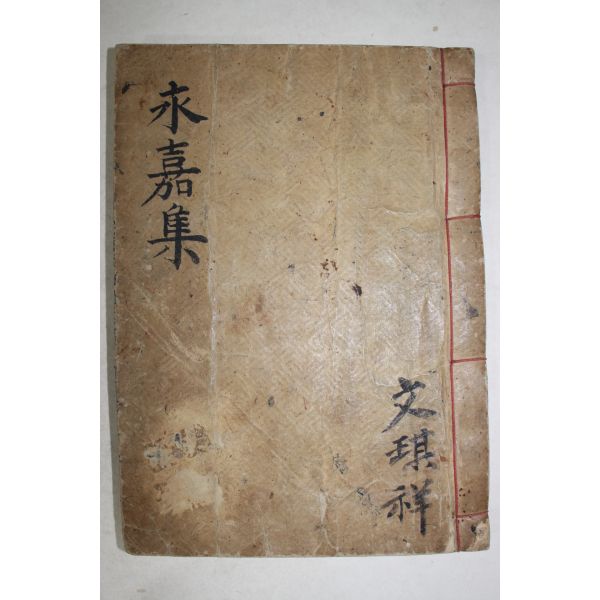 永嘉集
文琪祥